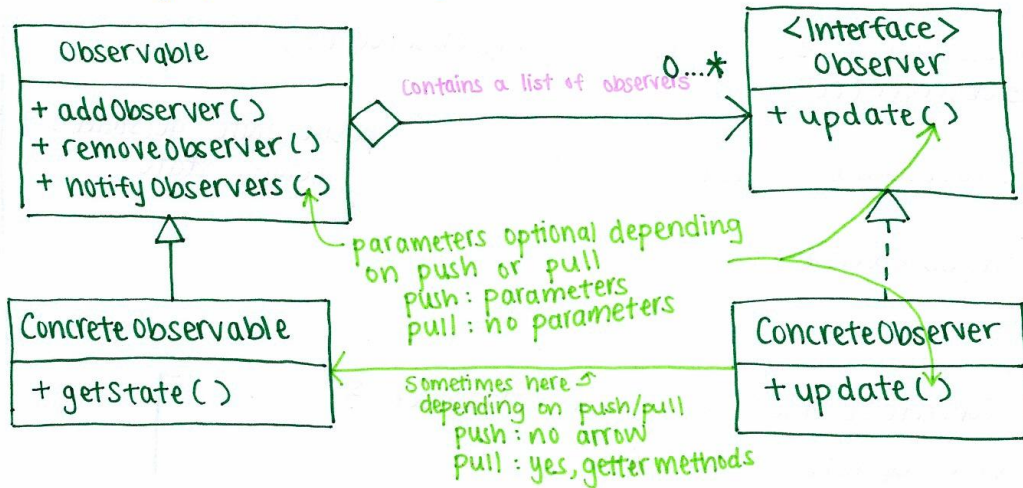 Observable
+ addObserver()
+ removeObserver()
+ notifyObservers()
Contains a list of observers
0...*
<Interface>
Observer
+ update()
parameters optional depending
on push or pull
push: parameters
pull: no parameters
ConcreteObservable
+ getState()
Sometimes here
depending on push/pull
push: no arrow
pull: yes, getter methods
ConcreteObserver
+ update()